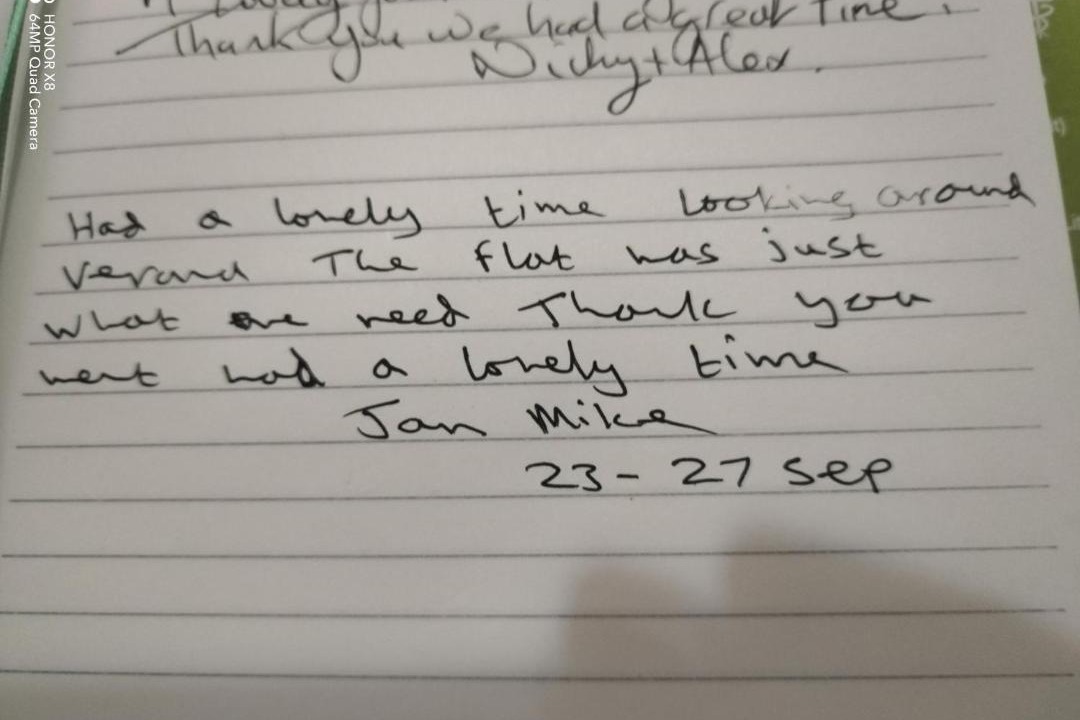 Thank you we had a great time.
Nichy + Alex.
Had a lovely time looking around
Verand The flat was just
what are need Thank you
went had a lovely time
Jan Mike
23 - 27 Sep
HONOR X8
64MP Quad Camera